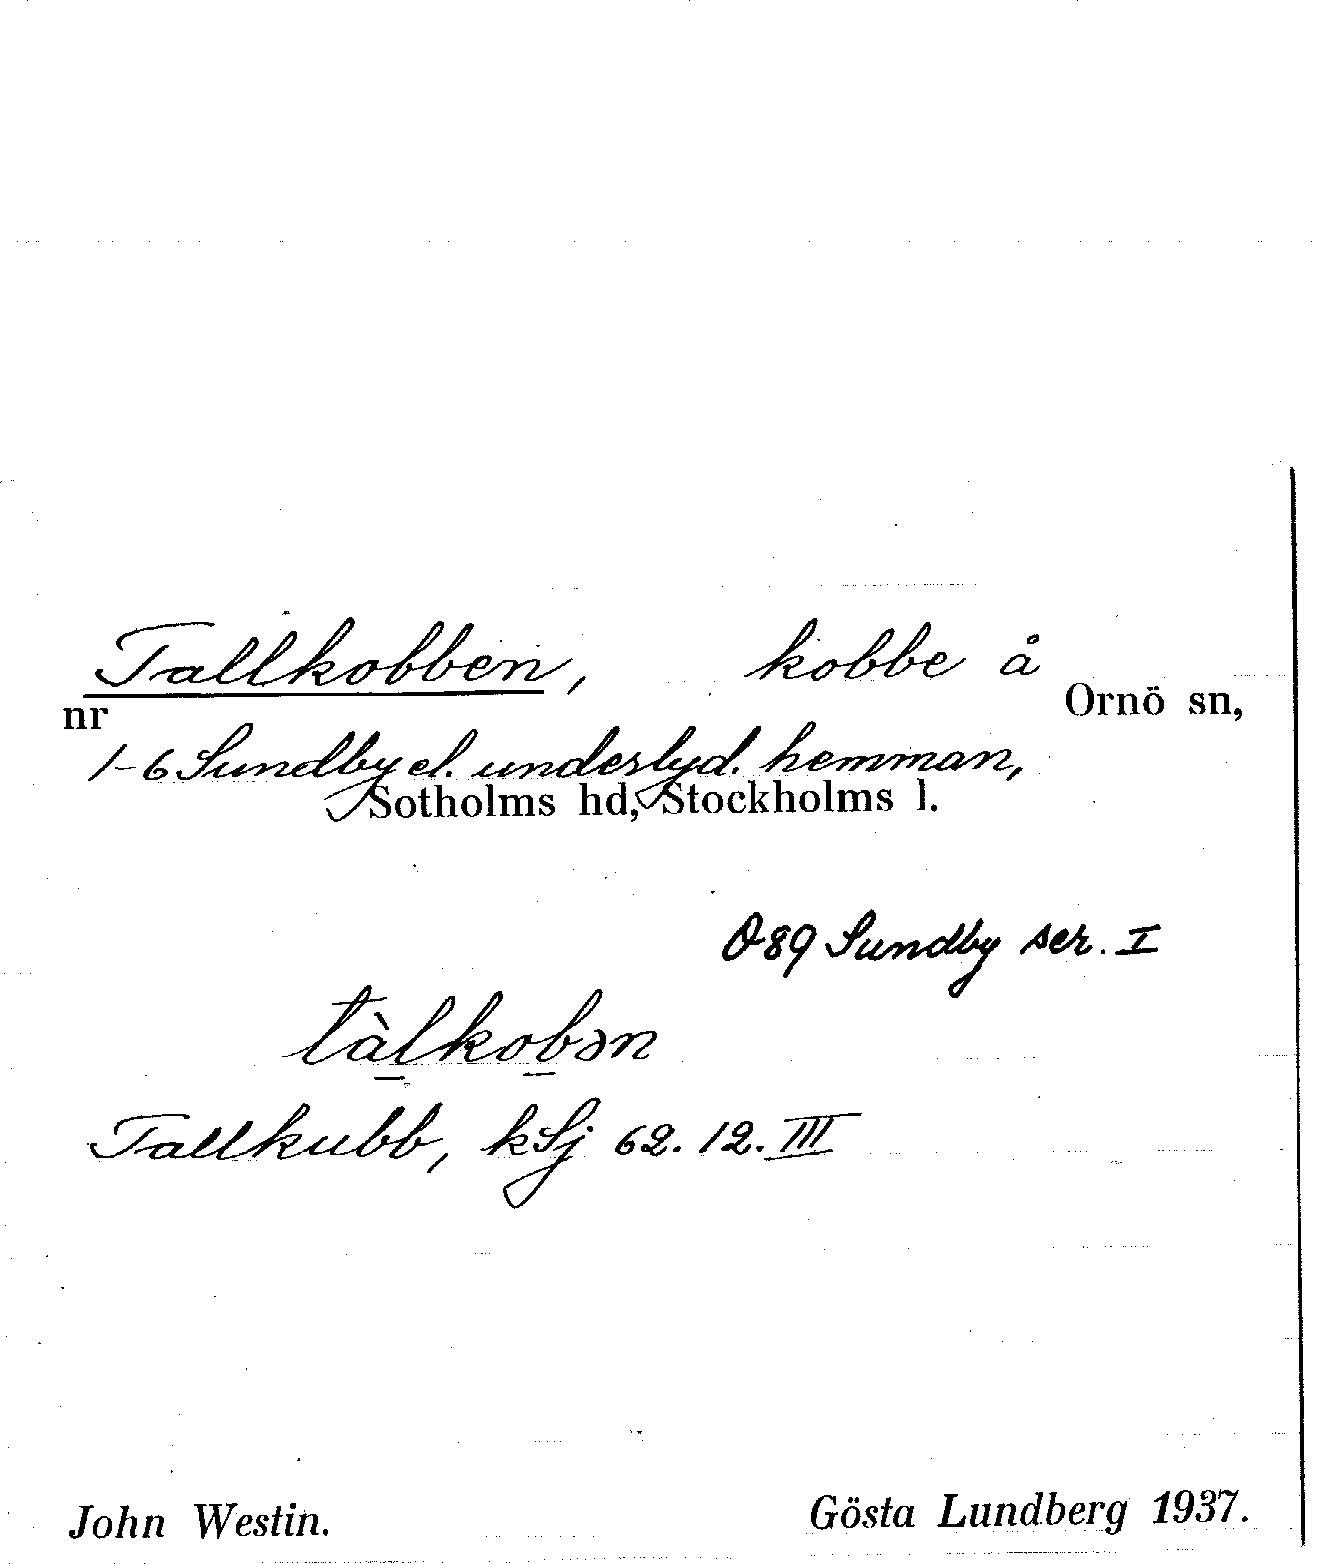 Tallkobben, kobbe å
nr Ornö sn,
1-6 Sundby el. underlyd. hemman,
Sotholms hd, Stockholms l.
O 89 Sundby ser. I
tàlkobən
Tallkubb, kSj 62. 12. III
John Westin. Gösta Lundberg 1937.